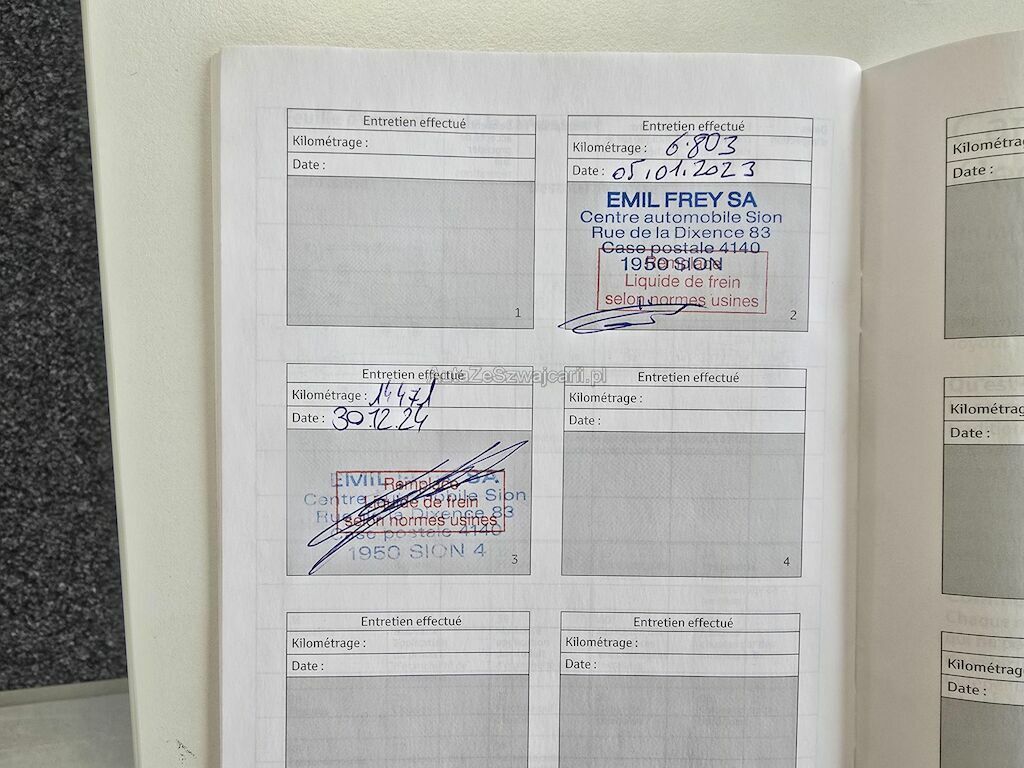 Entretien effectué
Kilométrage :
Date :
1
Entretien effectué
Kilométrage : 6.803
Date : 05.01.2023
EMIL FREY SA
Centre automobile Sion
Rue de la Dixence 83
Case postale 4140
1950 SION
Remplacé
Liquide de frein
selon normes usines
2
Entretien effectué
AutoZeSzwajcarii.pl
Kilométrage : 14471
Date : 30.12.24
EMIL FREY SA
Centre automobile Sion
Rue de la Dixence 83
Case postale 4140
1950 SION 4
Remplacé
Liquide de frein
selon normes usines
3
Entretien effectué
Kilométrage :
Date :
4
Entretien effectué
Kilométrage :
Date :
Entretien effectué
Kilométrage :
Date :
Kilométra
Date :
Kilométrag
Date :
Kilométrag
Date :